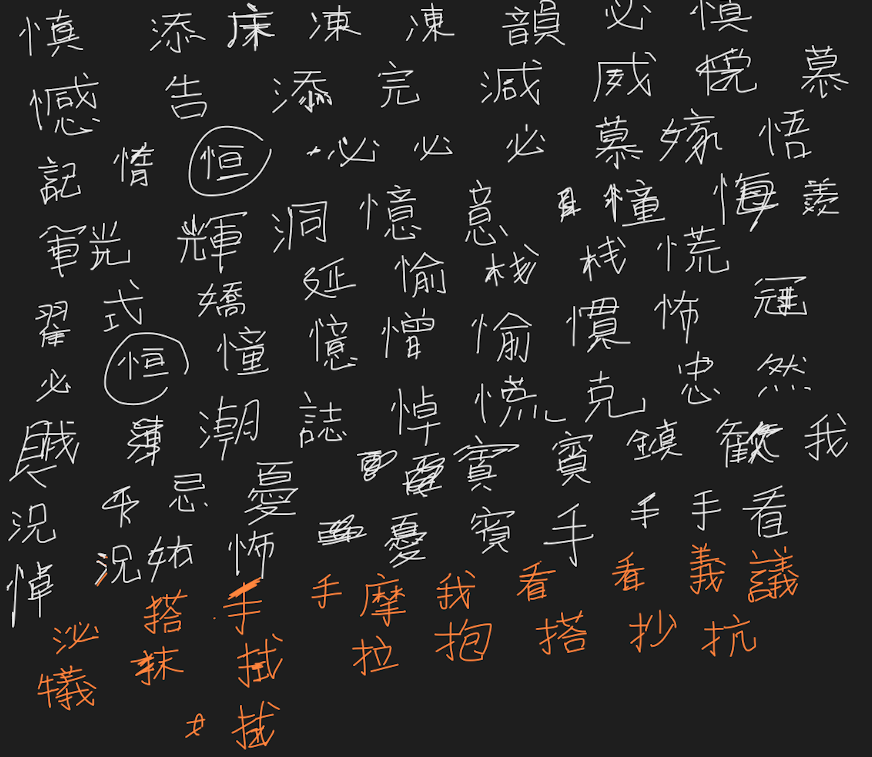 慎 添 床 凍 凍 韻 必 慎
憾 告 添 完 減 威 悦 慕
記 惰 恒 必 必 必 慕 嫁 悟
軍 光 輝 洞 憶 意 憧 悔 羨
翟 式 嬌 延 愉 桟 桟 慌
必 恒 憧 憶 憎 愉 慣 怖 冠
賊 薄 潮 誌 悼 慌 克 忠 然
況 忌 憂 賓 賓 鎮 歓 我
悼 況 怖 憂 賓 手 手 手 看
泌 搭 手 手 摩 我 看 看 義 議
犠 抹 拭 拉 抱 搭 抄 抗
拭